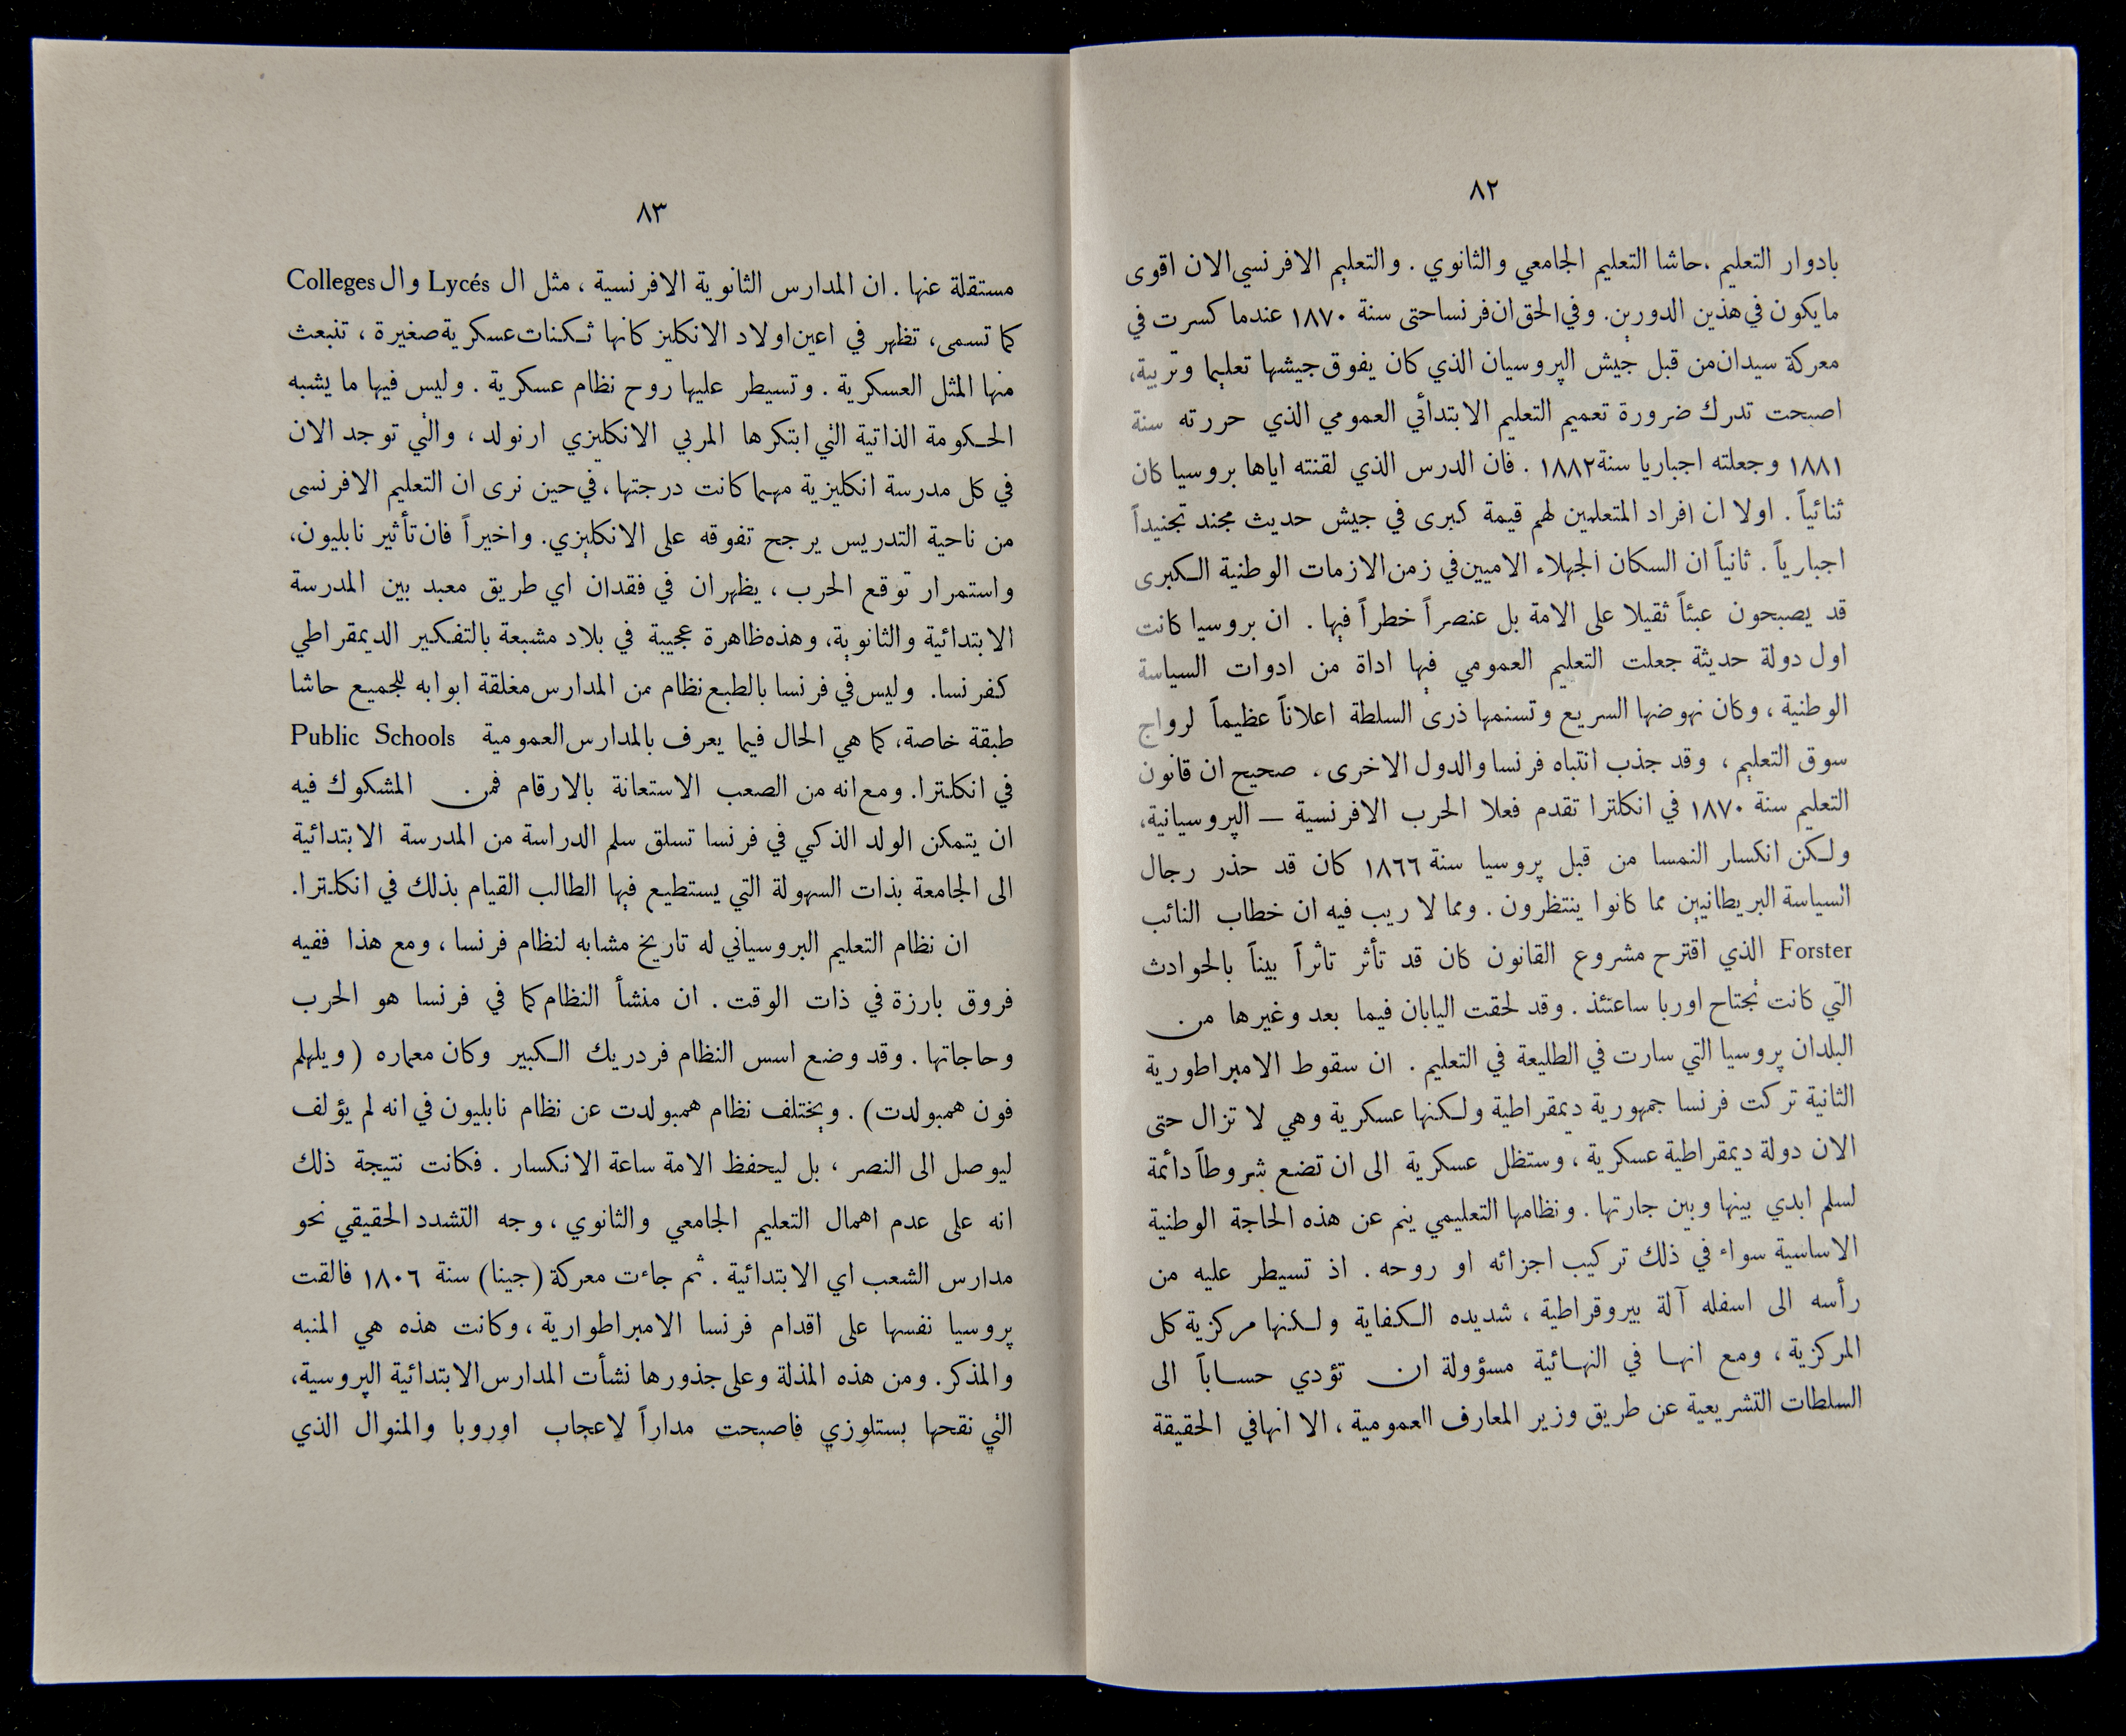 ٨٢
بادوار التعليم ، حاشا التعليم الجامعي والثانوي . والتعليم الافرنسي الان اقوى
ما يكون في هذين الدورين. وفي الحق ان فرنسا حتى سنة ١٨٧٠ عندما كسرت في
معركة سيدان من قبل جيش البروسيان الذي كان يفوق جيشها تعليما وتربية،
اصبحت تدرك ضرورة تعميم التعليم الابتدائي العمومي الذي حررته سنة
١٨٨١ وجعلته اجباريا سنة ١٨٨٢ . فان الدرس الذي لقنته اياها بروسيا كان
ثنائياً . اولا ان افراد المتعلمين لهم قيمة كبرى في جيش حديث مجند تجنيداً
اجبارياً . ثانياً ان السكان الجهلاء الاميين في زمن الازمات الوطنية الكبرى
قد يصبحون عبئاً ثقيلا على الامة بل عنصراً خطراً فيها . ان بروسيا كانت
اول دولة حديثة جعلت التعليم العمومي فيها اداة من ادوات السياسة
الوطنية ، وكان نهوضها السريع وتسنمها ذرى السلطة اعلاناً عظيماً لرواج
سوق التعليم ، وقد جذب انتباه فرنسا والدول الاخرى . صحيح ان قانون
التعليم سنة ١٨٧٠ في انكلترا تقدم فعلا الحرب الافرنسية — الپروسيانية،
ولكن انكسار النمسا من قبل پروسيا سنة ١٨٦٦ كان قد حذر رجال
السياسة البريطانيين مما كانوا ينتظرون . ومما لا ريب فيه ان خطاب النائب
Forster الذي اقترح مشروع القانون كان قد تأثر تاثراً بيناً بالحوادث
التي كانت تجتاح اوربا ساعتئذ . وقد لحقت اليابان فيما بعد وغيرها من
البلدان پروسيا التي سارت في الطليعة في التعليم . ان سقوط الامبراطورية
الثانية تركت فرنسا جمهورية ديمقراطية ولكنها عسكرية وهي لا تزال حتى
الان دولة ديمقراطية عسكرية ، وستظل عسكرية الى ان تضع شروطاً دائمة
لسلم ابدي بينها وبين جارتها . ونظامها التعليمي ينم عن هذه الحاجة الوطنية
الاساسية سواء في ذلك تركيب اجزائه او روحه . اذ تسيطر عليه من
رأسه الى اسفله آلة بيروقراطية ، شديده الكفاية ولكنها مركزية كل
المركزية ، ومع انها في النهائية مسؤولة ان تؤدي حساباً الى
السلطات التشريعية عن طريق وزير المعارف العمومية ، الا انها في الحقيقة
٨٣
مستقلة عنها . ان المدارس الثانوية الافرنسية ، مثل ال Lycés وال Colleges
كما تسمى، تظهر في اعين اولاد الانكليز كانها ثكنات عسكرية صغيرة ، تنبعث
منها المثل العسكرية . وتسيطر عليها روح نظام عسكرية . وليس فيها ما يشبه
الحكومة الذاتية التي ابتكرها المربي الانكليزي ارنولد ، والتي توجد الان
في كل مدرسة انكليزية مهما كانت درجتها ، في حين نرى ان التعليم الافرنسى
من ناحية التدريس يرجح تفوقه على الانكليزي. واخيراً فان تأثير نابليون،
واستمرار توقع الحرب ، يظهران في فقدان اي طريق معبد بين المدرسة
الابتدائية والثانوية، وهذه ظاهرة عجيبة في بلاد مشبعة بالتفكير الديمقراطي
كفرنسا. وليس في فرنسا بالطبع نظام من المدارس مغلقة ابوابه للجميع حاشا
طبقة خاصة، كما هي الحال فيما يعرف بالمدارس العمومية Public Schools
في انكلترا. ومع انه من الصعب الاستعانة بالارقام فمن المشكوك فيه
ان يتمكن الولد الذكي في فرنسا تسلق سلم الدراسة من المدرسة الابتدائية
الى الجامعة بذات السهولة التي يستطيع فيها الطالب القيام بذلك في انكلترا.
ان نظام التعليم البروسياني له تاريخ مشابه لنظام فرنسا ، ومع هذا ففيه
فروق بارزة في ذات الوقت . ان منشأ النظام كما في فرنسا هو الحرب
وحاجاتها . وقد وضع اسس النظام فردريك الكبير وكان معماره ( ويلهلم
فون همبولدت ) . ويختلف نظام همبولدت عن نظام نابليون في انه لم يؤلف
ليوصل الى النصر ، بل ليحفظ الامة ساعة الانكسار . فكانت نتيجة ذلك
انه على عدم اهمال التعليم الجامعي والثانوي ، وجه التشدد الحقيقي نحو
مدارس الشعب اي الابتدائية . ثم جاءت معركة (جينا) سنة ١٨٠٦ فالقت
پروسيا نفسها على اقدام فرنسا الامبراطوارية ، وكانت هذه هي المنبه
والمذكر. ومن هذه المذلة وعلى جذورها نشأت المدارس الابتدائية الپروسية،
التي نقحها بستلوزي فاصبحت مداراً لاعجاب اوروبا والمنوال الذي